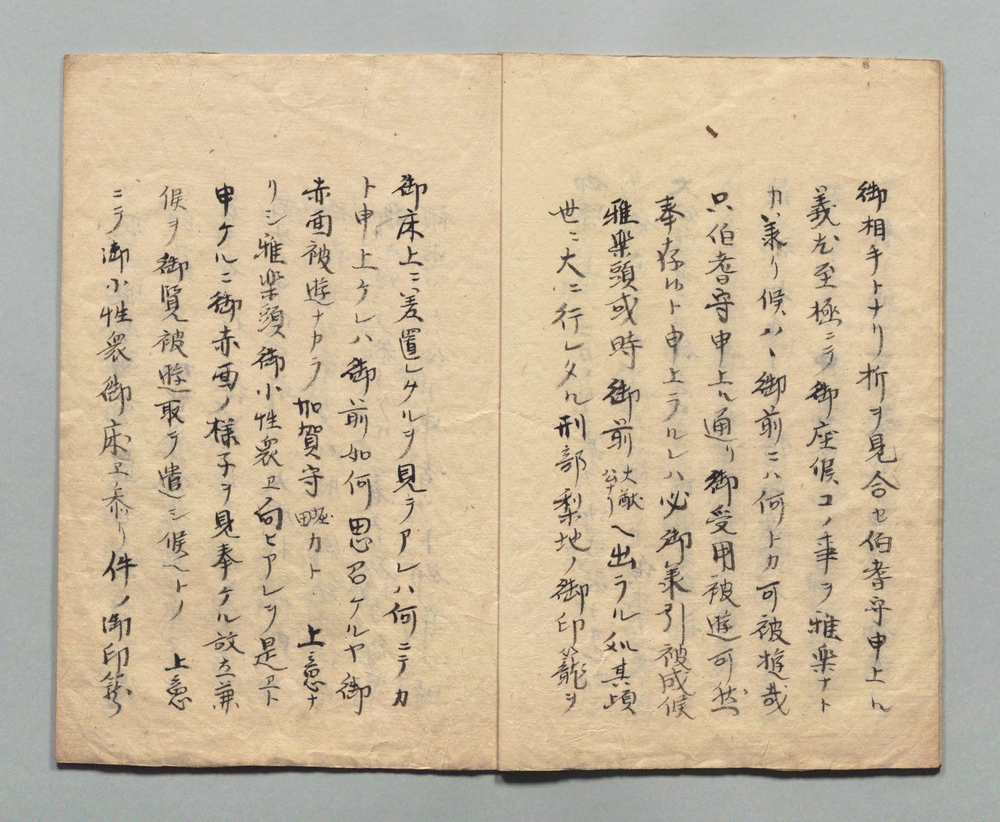 御相手トナリ折ヲ見合セ伯耆守申上ル
義尤至極ニテ御座候コノ事ヲ雅楽ナト
カ承リ候ハヽ御前ニハ何トカ可被遊哉
只伯耆守申上ル通リ御受用被遊可然
奉存候ト申上ラルレハ必御承引被成候
雅楽頭或時御前大猷公ナリヘ出ラル処其頃
世ニ大ニ行レタル刑部梨地ノ御印籠ヲ
御床上ニ差置レケルヲ見テアレハ何ニテカ
ト申上ケレハ御前如何思召ケルヤ御
赤面被遊ナカラ加賀守堀田カト 上意ナ
リシ雅楽頭御小性衆ヱ向ヒアレヲ是ヱト
申ケルニ御赤面ノ様子ヲ見奉ケル故立兼
候ヲ御覧被遊取テ遣シ候ヘトノ 上意
ニテ御小性衆御床ヱ参リ件ノ御印籠ヲ